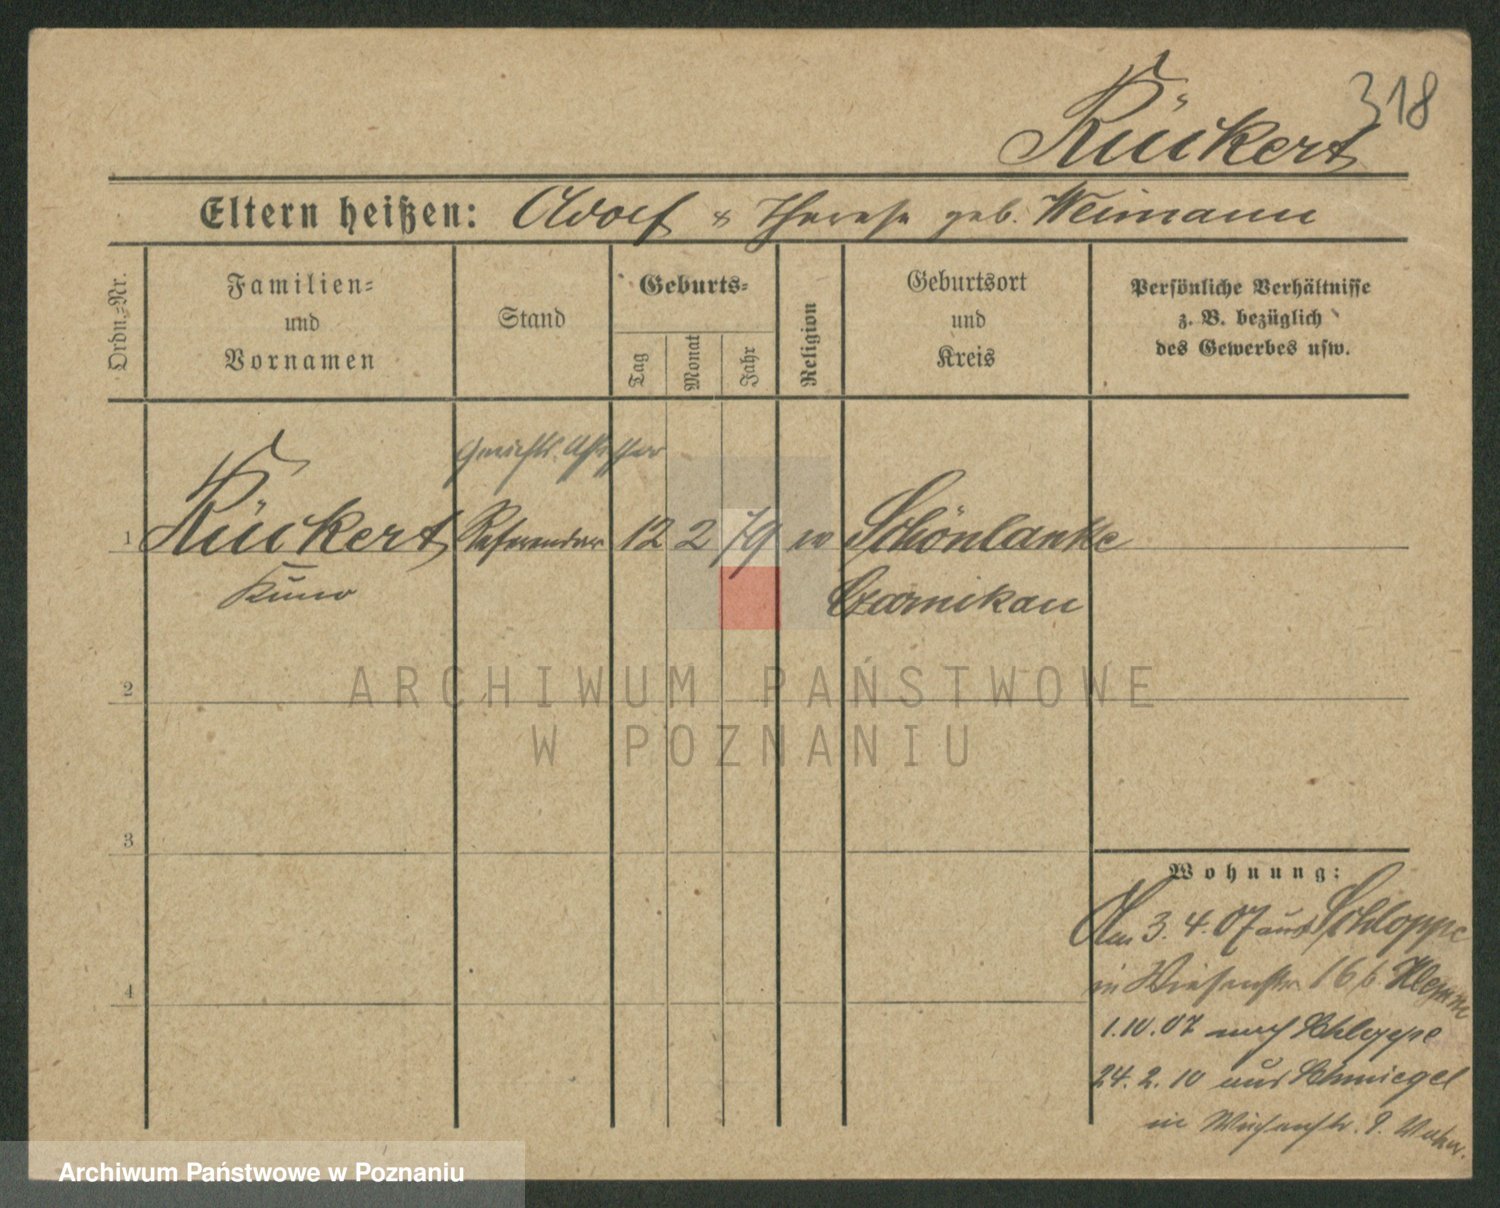 318
Rückert
Eltern heißen: Adolf & Therese geb. Weimann
Ordn.-Nr.
Familien-
und
Vornamen
Stand
Geburts-
Tag
Monat
Jahr
Religion
Geburtsort
und
Kreis
Persönliche Verhältnisse
z. B. bezüglich
des Gewerbes usw.
Gerichts Assessor
1 Rückert Referendar 12 2 79 Schönlanke
Kuno Czarnikau
2
3
4
Wohnung:
Am 3. 4. 07 aus Schloppe
in Wiesenstr. 16 b.
1.10.07 nach Schloppe
24. 2. 10 aus Schmiegel
in Wiesenstr. 9.
ARCHIWUM PAŃSTWOWE
W POZNANIU
Archiwum Państwowe w Poznaniu